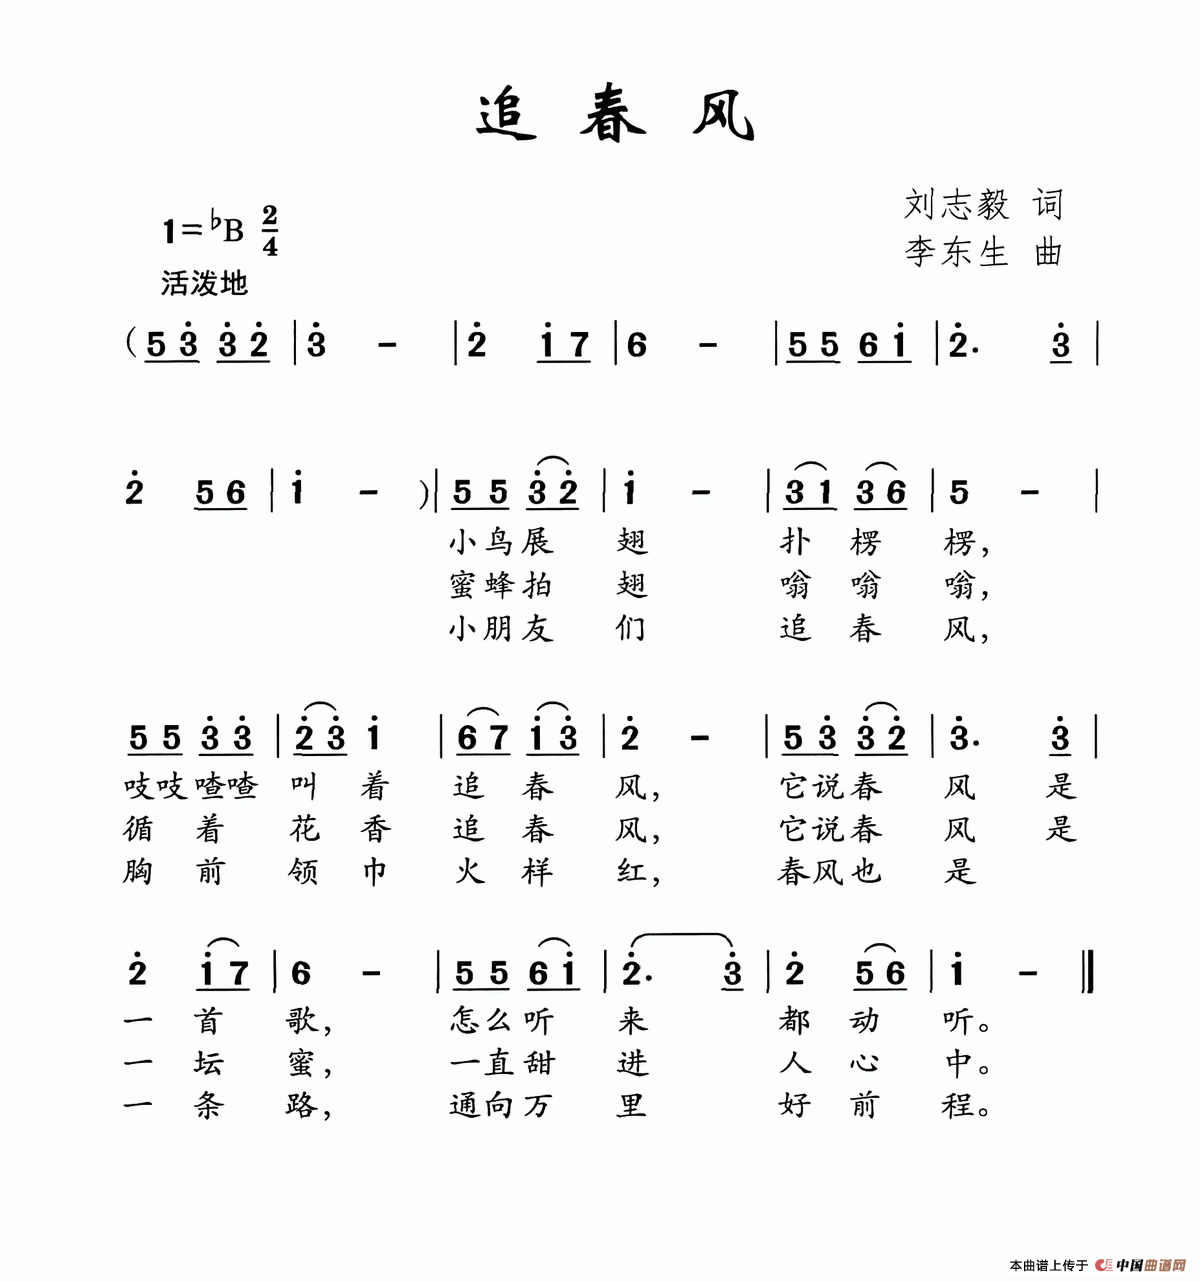 追春风
刘志毅 词
1=♭B 2/4
李东生 曲
活泼地
(5 3̇ 3̇ 2̇ | 3̇ - | 2̇ 1̇ 7 | 6 - | 5 5 6 1̇ | 2̇. 3̇ |
2̇ 5 6 | 1̇ - )| 5 5 3̇ 2̇ | 1̇ - | 3 1 3 6 | 5 - |
小鸟展 翅 扑 楞 楞，
蜜蜂拍 翅 嗡 嗡 嗡，
小朋友 们 追 春 风，
5 5 3̇ 3̇ | 2̇ 3̇ 1̇ | 6 7 1̇ 3̇ | 2̇ - | 5 3̇ 3̇ 2̇ | 3̇. 3̇ |
吱吱喳喳 叫 着 追 春 风， 它说春 风 是
循 着 花 香 追 春 风， 它说春 风 是
胸 前 领 巾 火 样 红， 春风也 是
2̇ 1̇ 7 | 6 - | 5 5 6 1̇ | 2̇. 3̇ | 2̇ 5 6 | 1̇ - ‖
一 首 歌， 怎么听 来 都 动 听。
一 坛 蜜， 一直甜 进 人 心 中。
一 条 路， 通向万 里 好 前 程。
本曲谱上传于 中国曲谱网